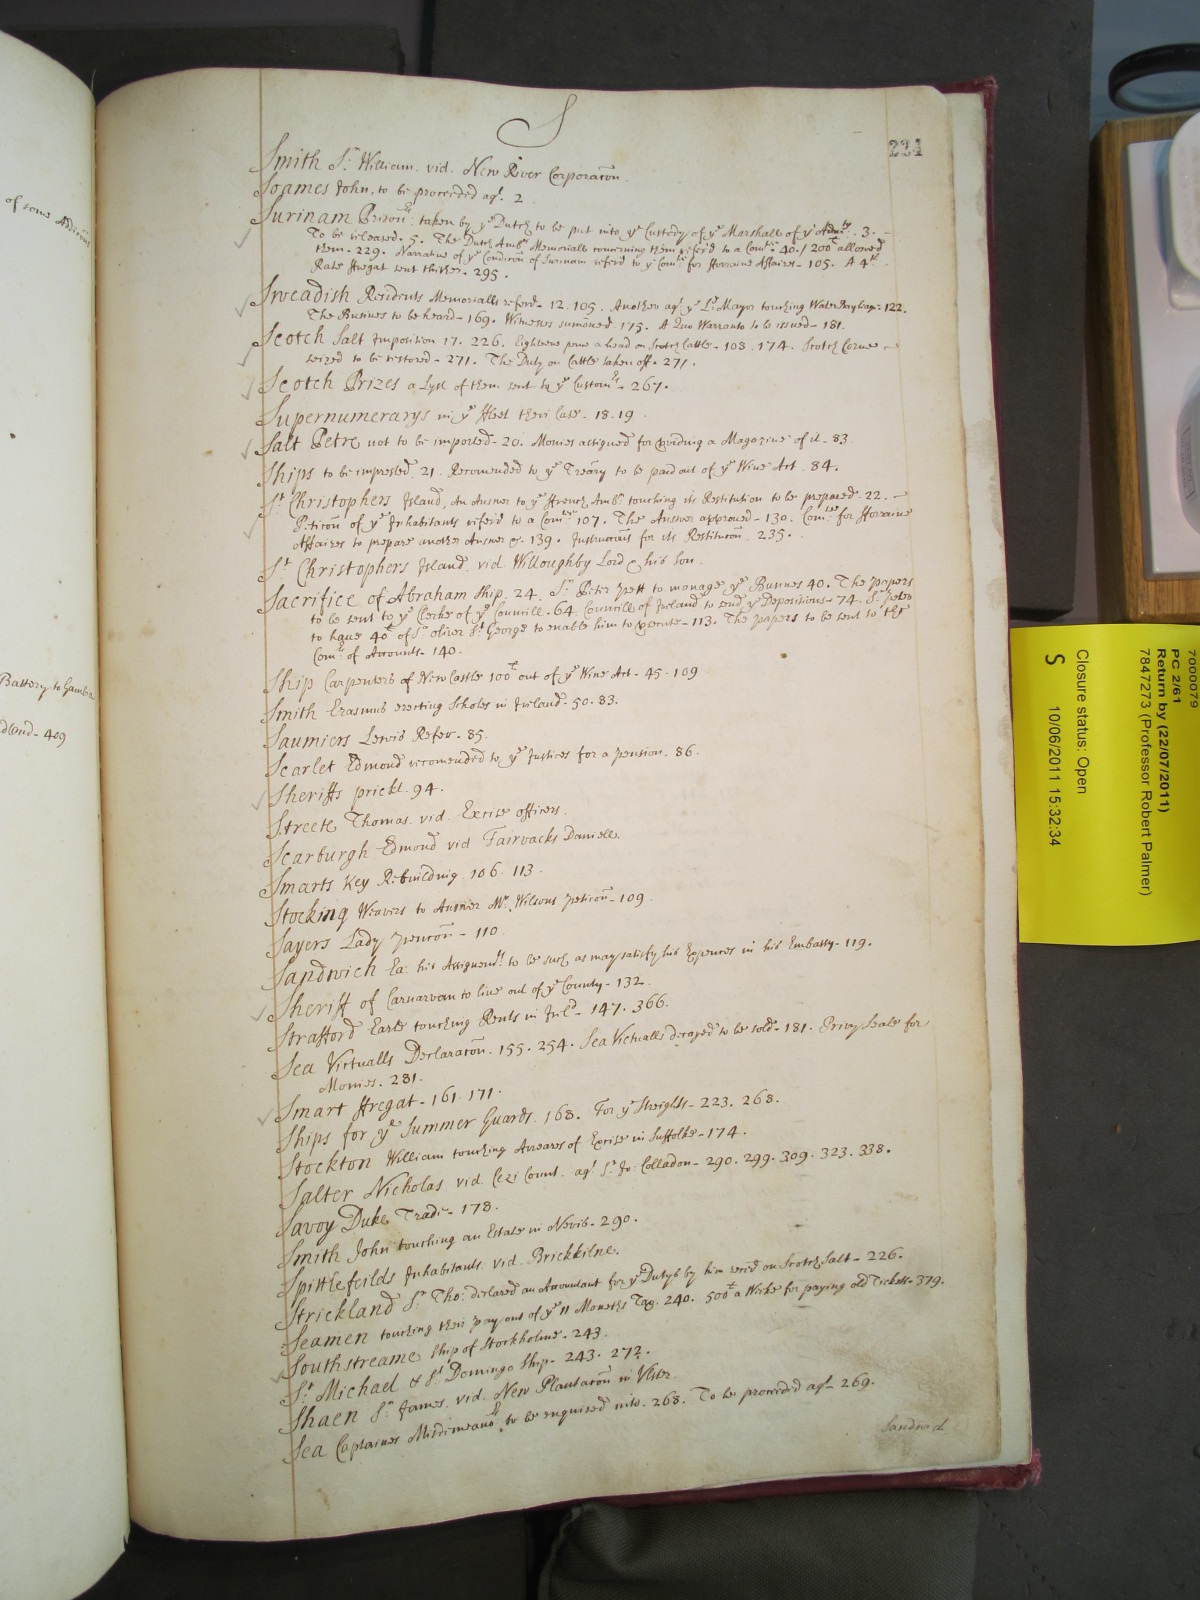 S
221
Smith Sr. William. vid. New River Corporacon.
Soames John, to be proceeded agt. 2
Surinam Prisonrs. taken by ye Dutch to be put into ye Custody of ye Marshall of ye Admlty. 3.
To be released. 5. The Dutch Ambrs Memorialls concerning them referd to a Comtee. 40. / 200£ allowed
them. 229. Narrative of ye Condicon of Surinam referd to ye Comtee for fforraine Affaires - 105. A 4th
Rate ffregat sent thither - 295.
Sweadish Residents Memorialls referd - 12. 105. Another agt. ye Ld Mayor touching Water Baylage - 122.
The Busines to be heard - 169. Witnesses sumoned. 175. A Quo Warranto to be issued - 181.
Scotch Salt Imposition 17. 226. Eighteene pence a head on Scotch Cattle - 103. 174. Scotch Corne
seized to be restored - 271. The Duty on Cattle taken off - 271.
Scotch Prizes a Lyst of them sent to ye Customrs. - 267.
Supernumerarys in ye ffleet their Case - 18. 19.
Salt Petre not to be imported - 20. Monies assigned for providing a Magazine of it - 83.
Ships to be impressed. 21. Recomended to ye Treary to be paid out of ye Wine Act. 84.
St. Christophers Island, An Answer to ye ffrench Ambr. touching its Restitution to be prepared. 22.
Peticon of ye Inhabitants referd to a Comtee. 107. The Answer approved - 130. Comtee for fforraine
Affaires to prepare another Answer &. 139. Instruccons for its Restitucon. 235.
St. Christophers Island. vid Willoughby Lord & his Son.
Sacrifice of Abraham Ship. 24. Sr. Peter Pett to manage ye Busines 40. The papers
to be sent to ye Clerke of ye Councill. 64. Councill of Ireland to send ye Depositions - 74. Sr. Peter
to have 40£ of Sr. Oliver St George to enable him to prosecute - 113. The papers to be sent to the
Comrs. of Accounts - 140.
Ship Carpenters of New Castle 100£ out of ye Wine Act - 45. 109
Smith Erasmus erecting Scholes in Ireland. 50. 83.
Saumiers Lewis Refer. 85.
Scarlet Edmond recomended to ye Justices for a pension. 86.
Sheriffs prickt. 94.
Streete Thomas. vid. Excise officers.
Scarburgh Edmond vid Fairvacks Daniell.
Smarts Key Rebuilding. 106. 113.
Stocking Weavers to Answer Mr. Wilsons peticon - 109.
Sayers Lady pencon - 110.
Sandwich Ea: his Assignmt. to be such as may satisfy his Expences in his Embassy - 119.
Sheriff of Carnarvan to live out of ye County - 132.
Strafford Earle touching Rents in Irld. - 147. 366.
Sea Victualls Declaracon. 155. 254. Sea Victualls decayed to be sold - 181. Privy Seale for
Monies. 281.
Smart ffregat - 161. 171.
Ships for ye Summer Guards. 168. For ye Streights - 223. 268.
Stockton William touching Arreares of Excise in Suffolke - 174.
Salter Nicholas vid Cezi Count. agt. Sr. Jo: Colladon - 290. 299. 309. 323. 338.
Savoy Duke Trade - 178.
Smith John touching an Estate in Nevis - 290.
Spittlefeilds Inhabitants. vid. Brickkilne.
Strickland Sr. Tho: declared an Accountant for ye Dutys by him recd on Scotch Salt - 226.
Seamen touching their pay out of ye 11 Moneths Tax. 240. 500£ a Weeke for paying old Ticketts - 379.
Southstreame Ship of Stockholme - 243.
St. Michael & St. Domingo Ship - 243. 272.
Shaen Sr. James. vid. New Plantacon in Ulster.
Sea Captaines Misdemeanors. to be enquired into. 268. To be proceeded agt - 269.
of some Addicons
Battery to Gambia
409
7000079
PC 2/61
Return by (22/07/2011)
7847273 (Professor Robert Palmer)
Closure status: Open
S 10/06/2011 15:32:34